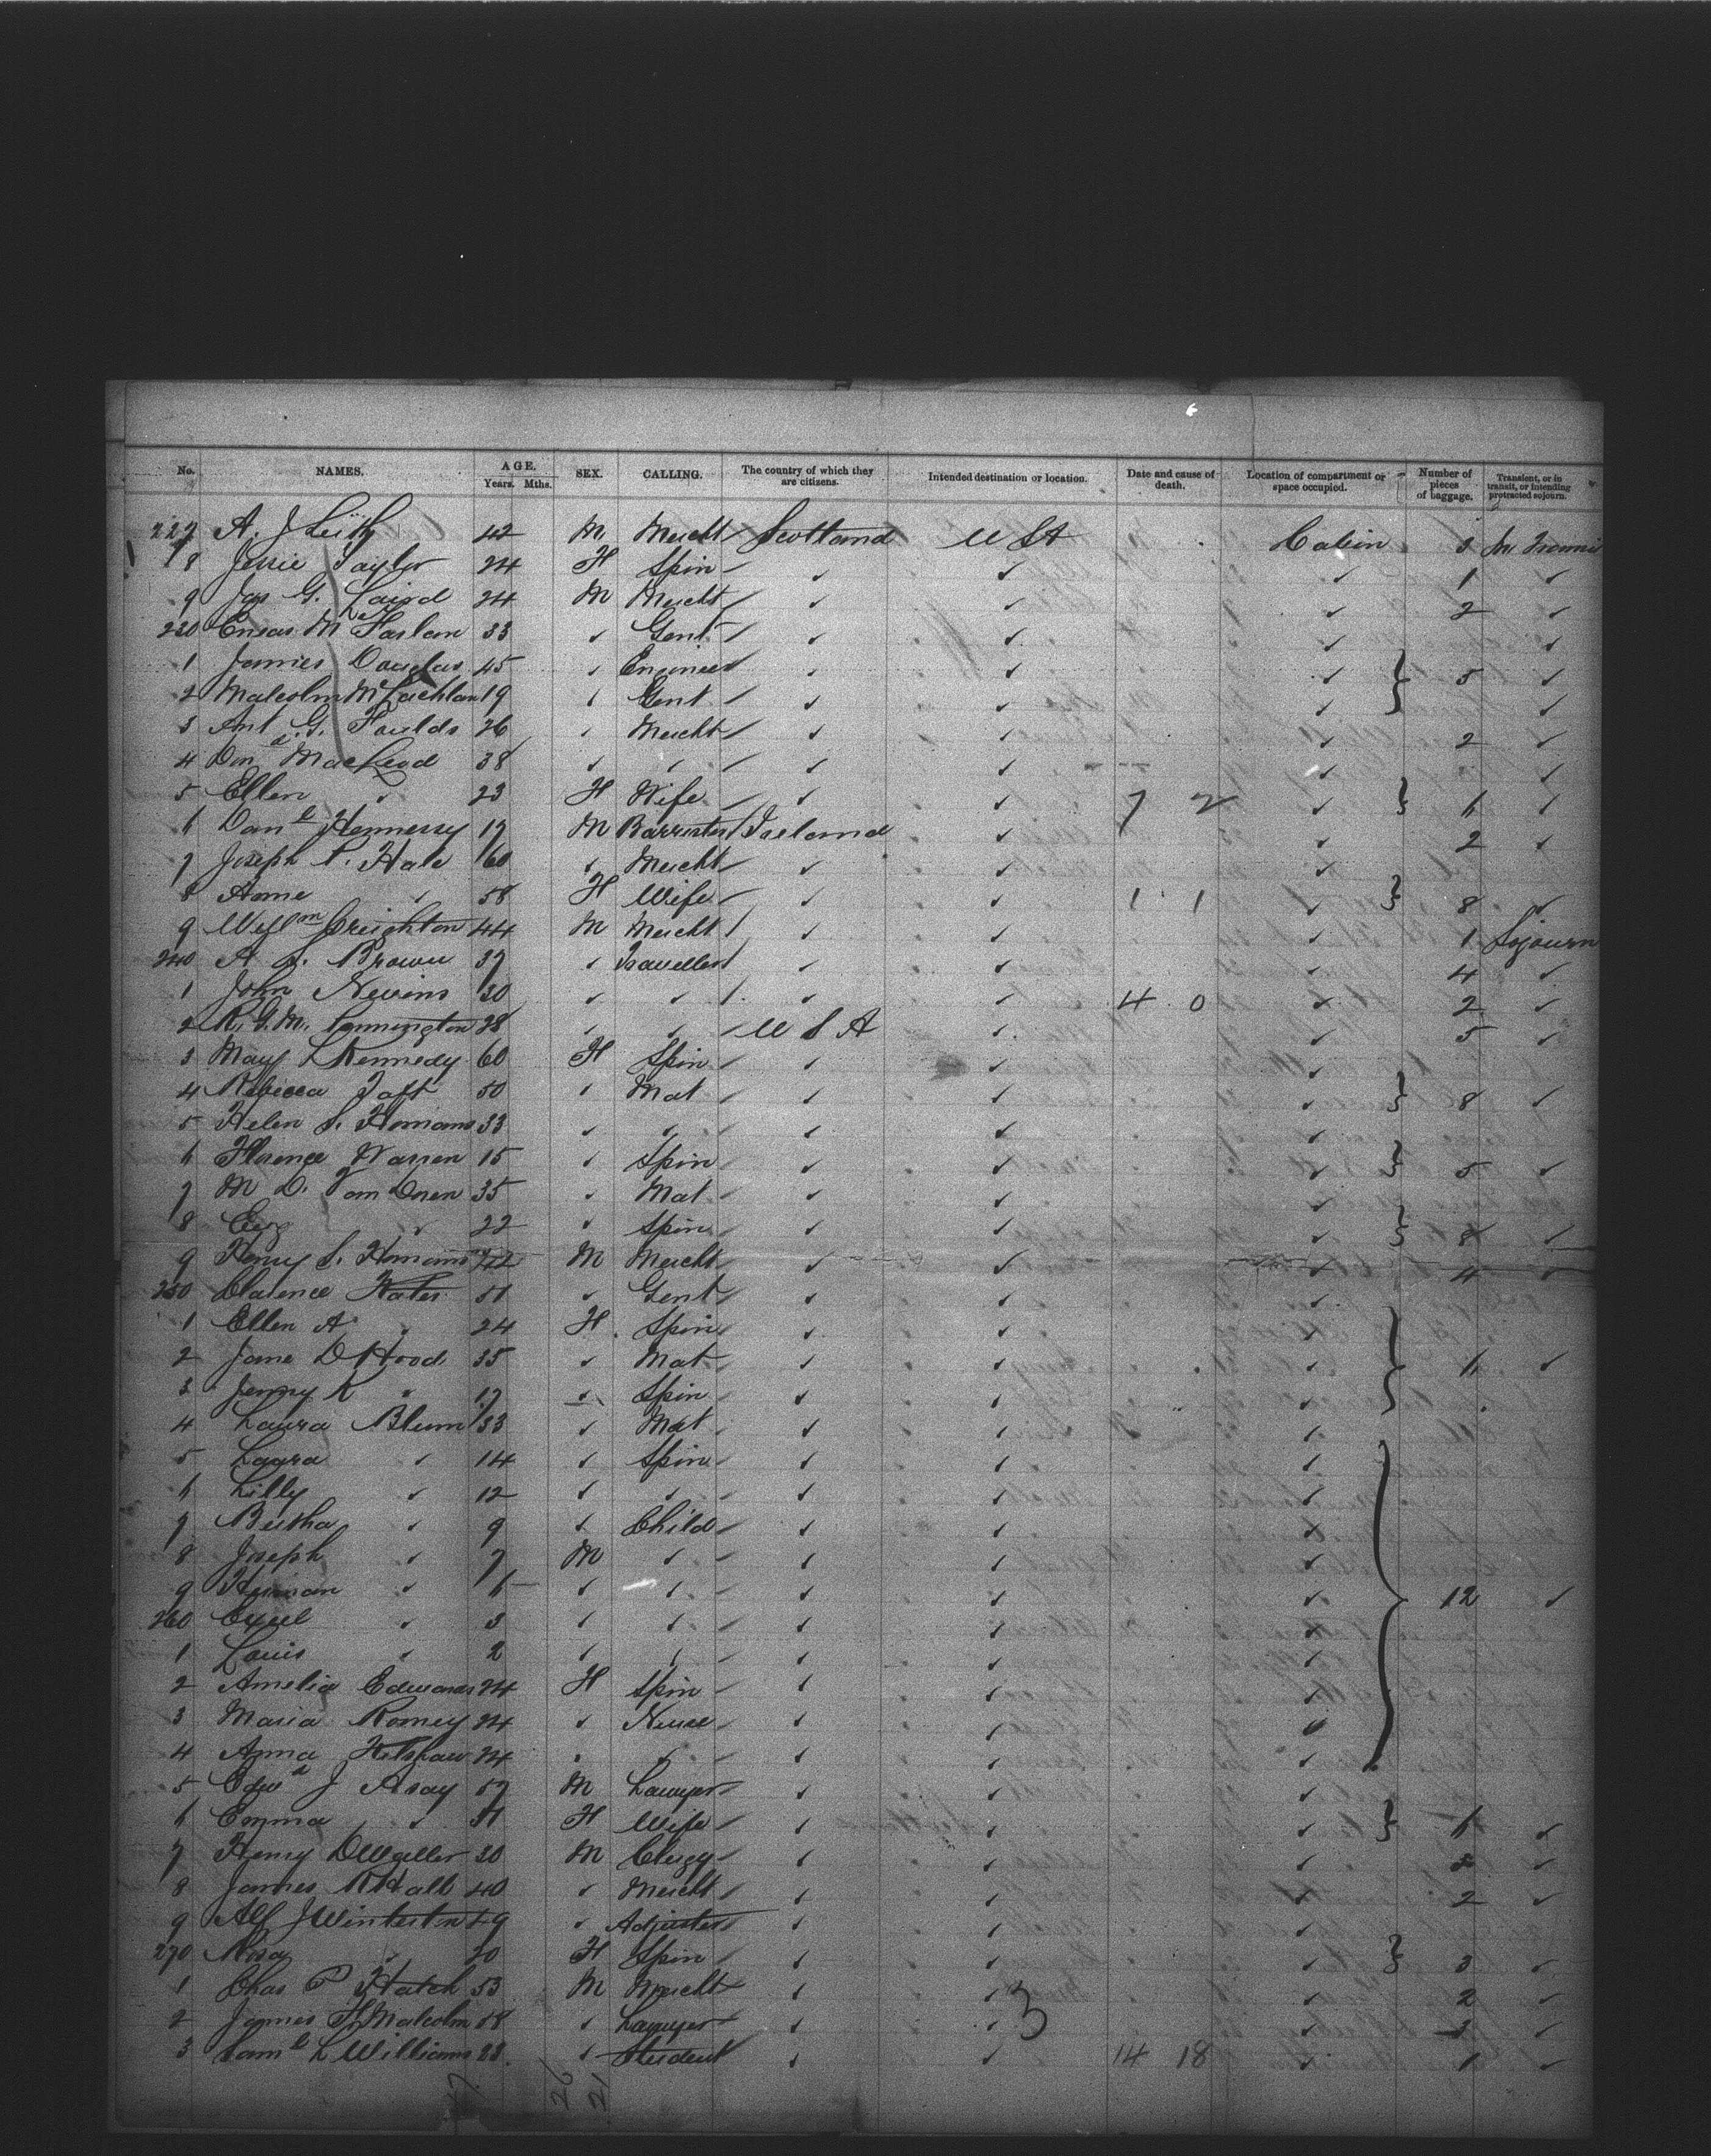 No. NAMES. AGE. Years. Mths. SEX. CALLING. The country of which they are citizens. Intended destination or location. Date and cause of death. Location of compartment or space occupied. Number of pieces of baggage. Transient, or in transit, or intending protracted sojourn.
227 A. J Leith 42 M Mercht Scotland U St Cabin 3
8 Jessie Taylor 24 F Spin ✓ ✓ ✓ 1 ✓
9 Jas G. Laird 24 M Mercht ✓ ✓ ✓ 2 ✓
230 33 ✓ Gent ✓ ✓ ✓ ✓
1 James Douglas 45 ✓ Engineer ✓ ✓ ✓ } 5 ✓
2 Malcolm McLachlan 19 ✓ Gent ✓ ✓ ✓ ✓
3 G. Faulds 26 ✓ Mercht ✓ ✓ ✓ 2 ✓
4 Don'd MacLeod 38 ✓ ✓ ✓ ✓ ✓ ✓
5 Ellen ✓ 23 F Wife ✓ ✓ 7 2 ✓ } 6 ✓
6 Danl Hennessy 17 M Barrister Ireland ✓ ✓ 2 ✓
7 Joseph P. Hale 60 ✓ Mercht ✓ ✓ ✓
8 Anne ✓ 58 F Wife ✓ ✓ 1 1 ✓ } 8 ✓
9 Willm Creighton 44 M Mercht ✓ ✓ ✓ 1 Sojourn
240 A S. Brown 37 ✓ Traveller ✓ ✓ ✓ 4 ✓
1 John Nevins 30 ✓ ✓ ✓ ✓ 4 0 ✓ 2 ✓
2 R. G. M. Pennington 28 ✓ ✓ U S A ✓ ✓ 5 ✓
3 Mary L Kennedy 60 F Spin ✓ ✓ ✓
4 Rebecca Taft 50 ✓ Mat ✓ ✓ ✓ } 8 ✓
5 Helen S. Homans 33 ✓ ✓ ✓ ✓ ✓
6 Florence Warren 15 ✓ Spin ✓ ✓ ✓ } 5 ✓
7 M D. Van Duren 35 ✓ Mat ✓ ✓ ✓
8 ✓ 22 ✓ Spin ✓ ✓ ✓ } 8 ✓
9 Henry S. Homans M Mercht ✓ ✓ ✓ 4 ✓
250 Clarence 51 ✓ Gent ✓ ✓ ✓
1 Ellen A ✓ 24 F Spin ✓ ✓ ✓
2 Jane D Hood 35 ✓ Mat ✓ ✓ ✓ } 11 ✓
3 Jenny K ✓ 17 ✓ Spin ✓ ✓ ✓
4 Laura Blum 33 ✓ Mat ✓ ✓ ✓
5 Laura ✓ 14 ✓ Spin ✓ ✓ ✓
6 Lilly ✓ 12 ✓ ✓ ✓ ✓ ✓
7 Bertha ✓ 9 ✓ Child ✓ ✓ ✓
8 Joseph ✓ 7 M ✓ ✓ ✓ ✓
9 Herman ✓ 6 ✓ ✓ ✓ ✓ ✓ } 12 ✓
260 ✓ 3 ✓ ✓ ✓ ✓ ✓
1 Louis ✓ 2 ✓ ✓ ✓ ✓ ✓
2 Amelia Edwards 24 F Spin ✓ ✓ ✓
3 Maria Romey 24 ✓ Nurse ✓ ✓ ✓
4 Anna 24 ✓ ✓ ✓ ✓ ✓
5 Edwd J Asay 57 M Lawyer ✓ ✓ ✓
6 Emma ✓ 51 F Wife ✓ ✓ ✓ } 6 ✓
7 Henry 30 M Clergy ✓ ✓ ✓ 2 ✓
8 James R Hall 40 ✓ Mercht ✓ ✓ ✓ 2 ✓
9 Alf J Winterton 49 ✓ Adjuster ✓ ✓ ✓
270 Rosa ✓ 20 F Spin ✓ ✓ ✓ } 3 ✓
1 Chas P Hatch 53 M Mercht ✓ ✓ ✓ 2 ✓
2 James F. Malcolm 58 ✓ Lawyer ✓ ✓ 3 ✓ 3 ✓
3 Saml L Williams 23 ✓ Student ✓ ✓ 14 18 ✓ 1 ✓
47 26 21